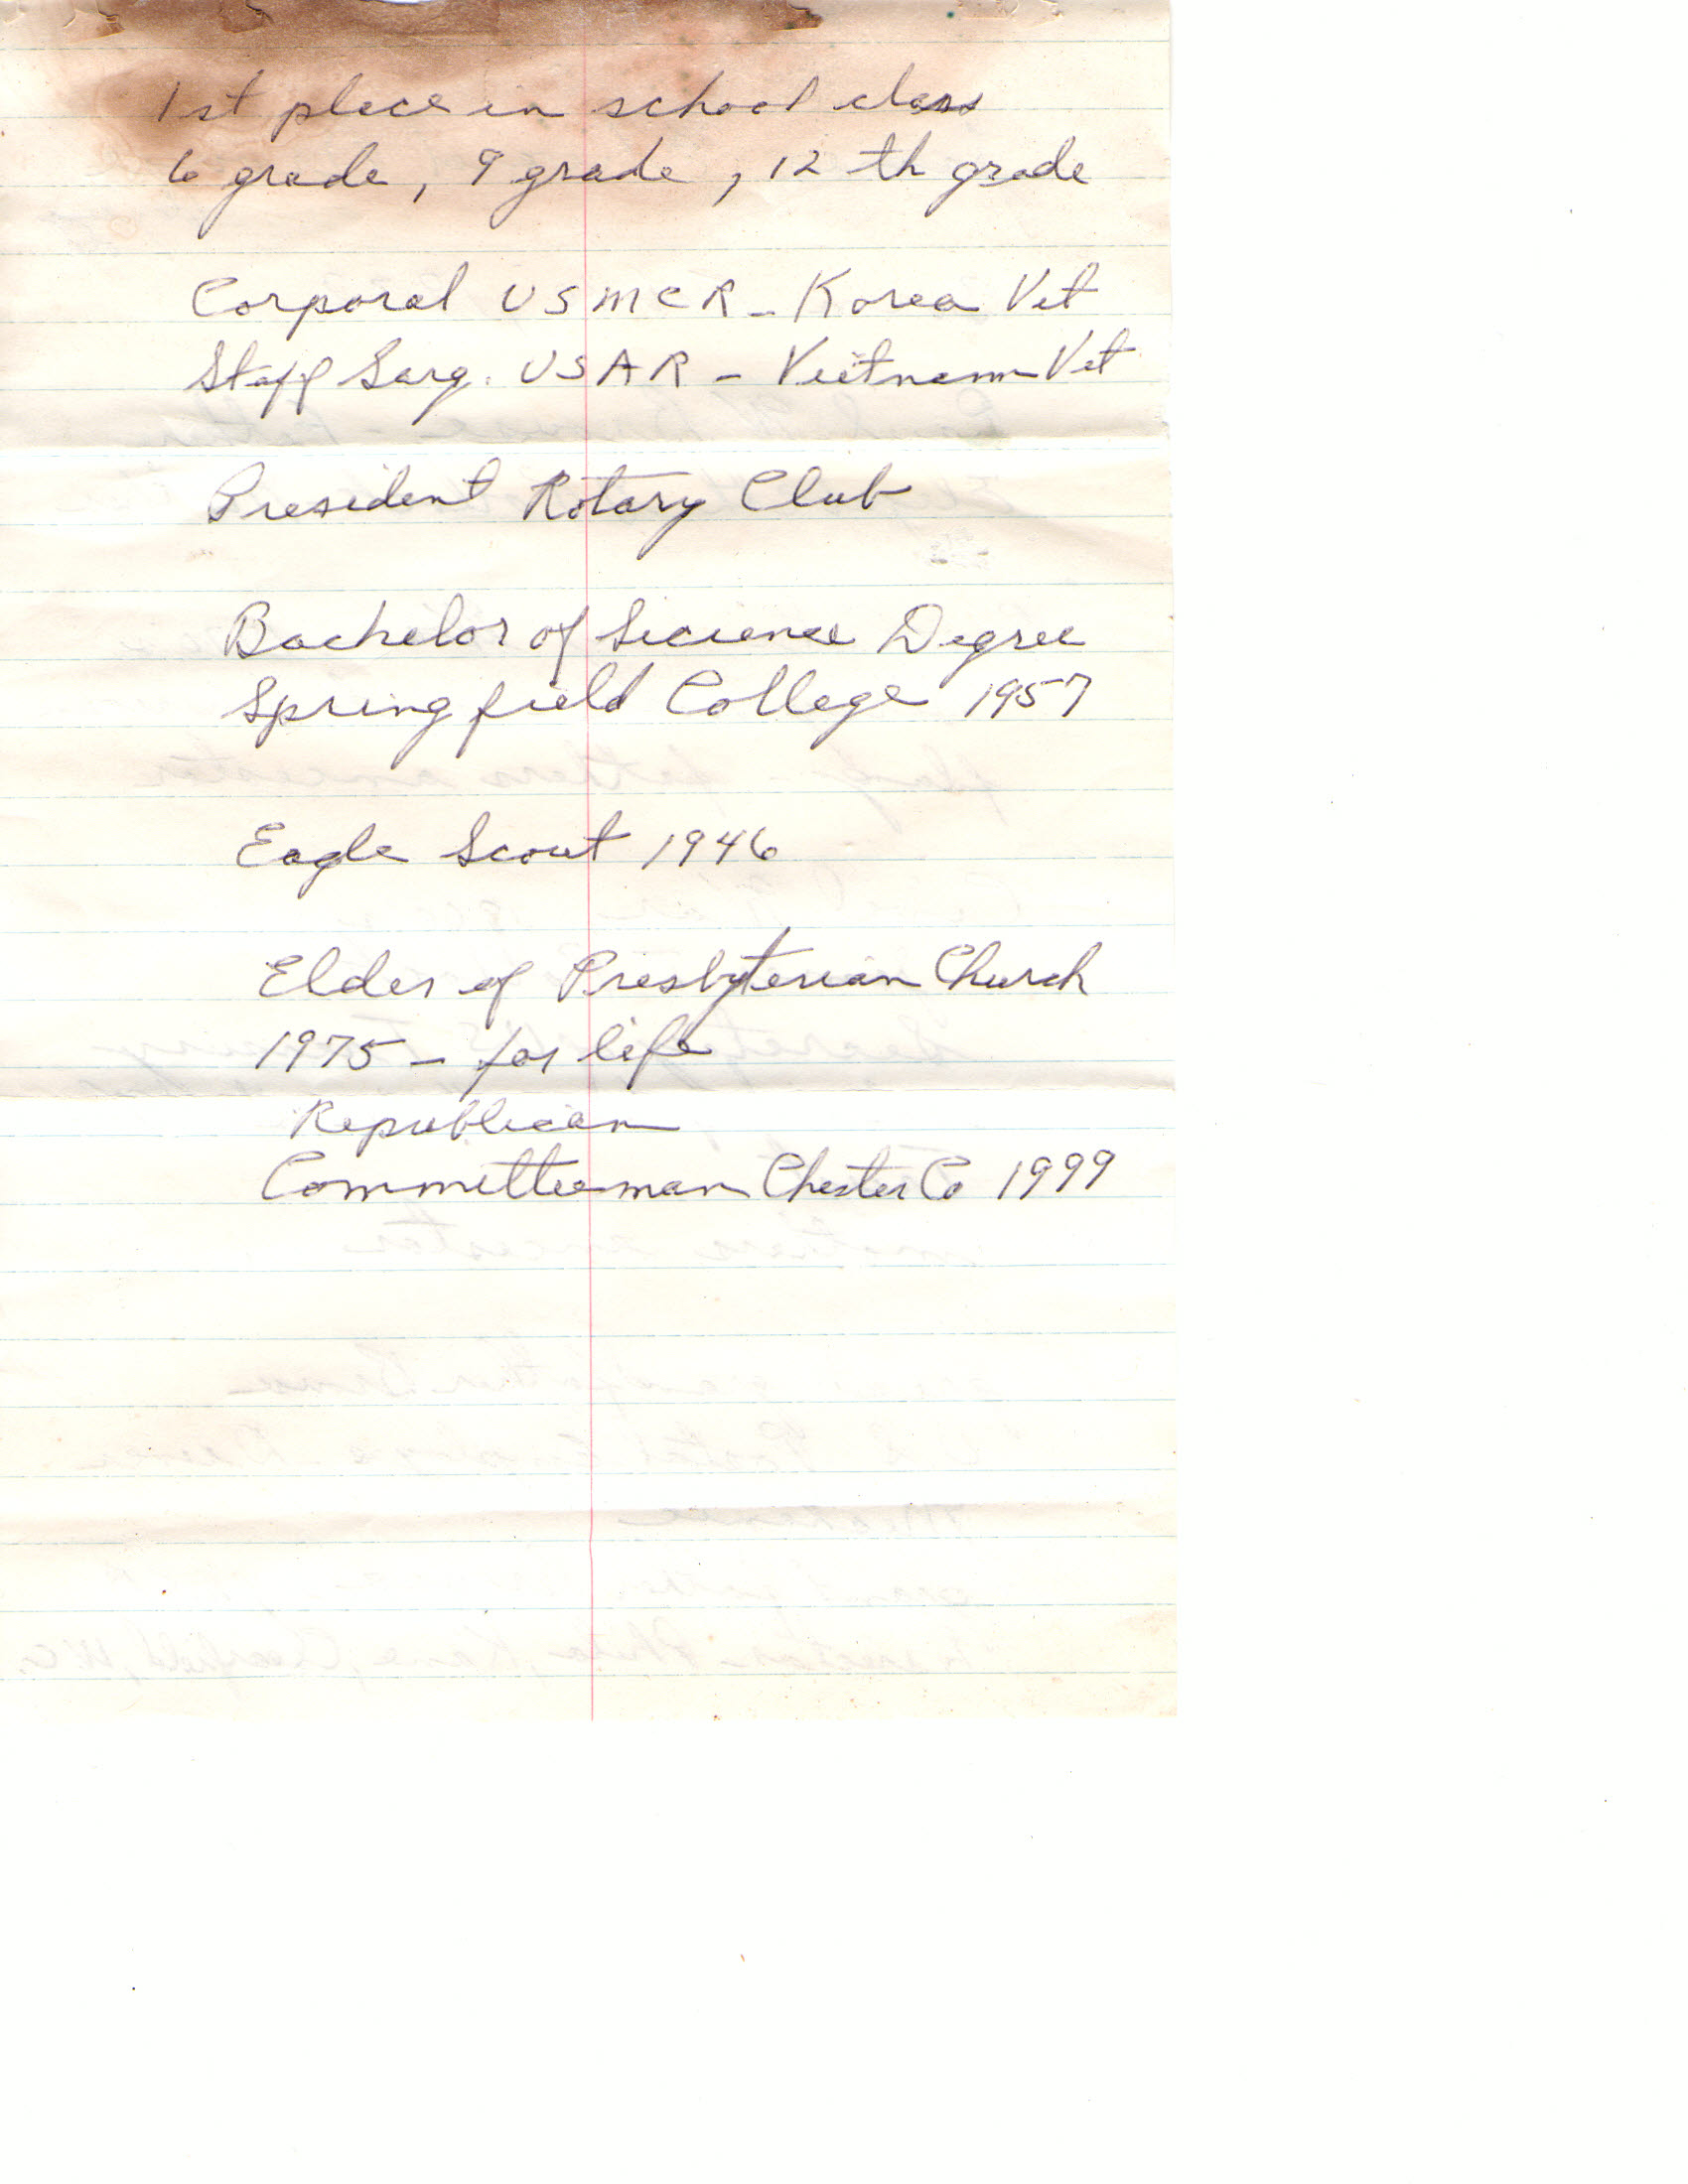 1st place in school class
6 grade, 9 grade, 12 th grade
Corporal USMCR - Korea Vet
Staff Sarg. USAR - Vietnam Vet
President Rotary Club
Bachelor of Science Degree
Springfield College 1957
Eagle Scout 1946
Elder of Presbyterian Church
1975 - for life
Republican
Committeeman Chester Co 1999